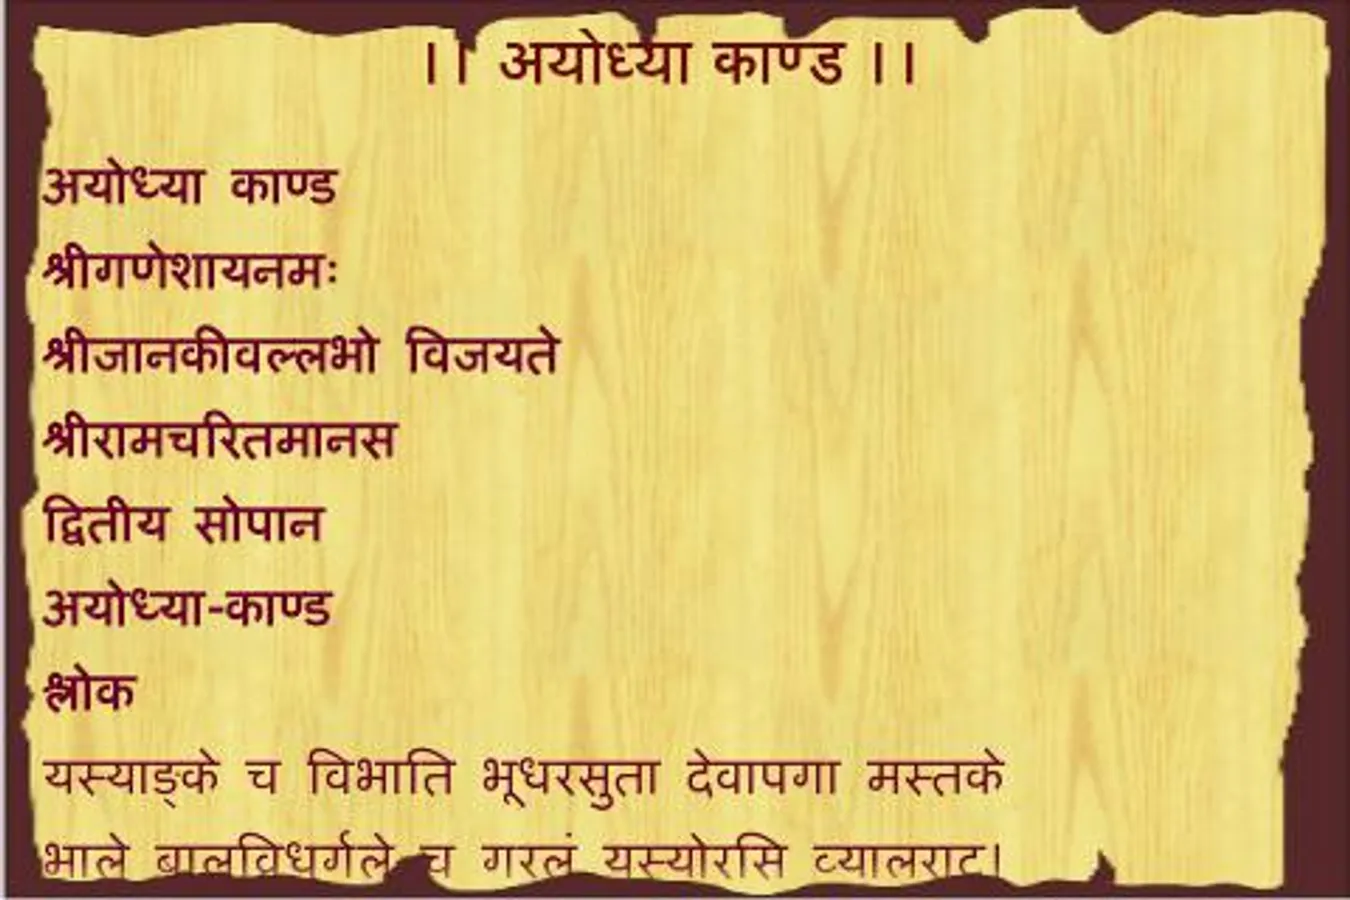 ।। अयोध्या काण्ड ।।
अयोध्या काण्ड
श्रीगणेशायनमः
श्रीजानकीवल्लभो विजयते
श्रीरामचरितमानस
द्वितीय सोपान
अयोध्या-काण्ड
श्लोक
यस्याङ्के च विभाति भूधरसुता देवापगा मस्तके
भाले बालविधर्गले च गरलं यस्योरसि व्यालराट।